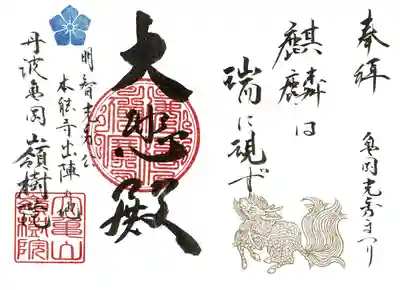 奉拝
亀岡光秀まつり
麒麟は
瑞に現ず
大悲殿
明智光秀公
本能寺出陣の地
丹波亀岡 山嶺樹院